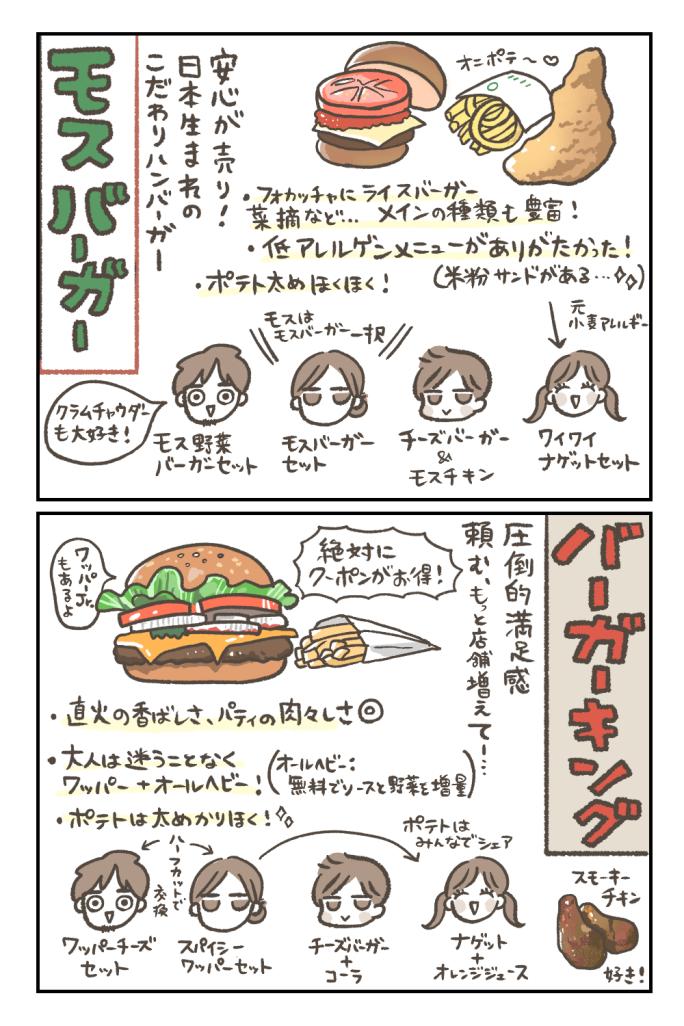 モスバーガー
安心が売り!
日本生まれの
こだわりハンバーガー
オニポテ～♡
・フォカッチャにライスバーガー
菜摘など… メインの種類も豊富!
・低アレルゲンメニューがありがたかった!
(米粉サンドがある…)
・ポテト太めほくほく!
元
小麦アレルギー
モスは
モスバーガー一択
クラムチャウダー
も大好き!
モス野菜
バーガーセット
モスバーガー
セット
チーズバーガー
&
モスチキン
ワイワイ
ナゲットセット
バーガーキング
圧倒的満足感
頼む、もっと店舗増えてー…
絶対に
クーポンがお得!
ワッパーJr.
もあるよ
・直火の香ばしさ、パティの肉々しさ◎
・大人は迷うことなく
ワッパー+オールヘビー!
(オールヘビー:
無料でソースと野菜を増量)
・ポテトは太めかりほく!
ハーフカットで
交換
ポテトは
みんなでシェア
ワッパーチーズ
セット
スパイシー
ワッパーセット
チーズバーガー
+
コーラ
ナゲット
+
オレンジジュース
スモーキー
チキン
好き!